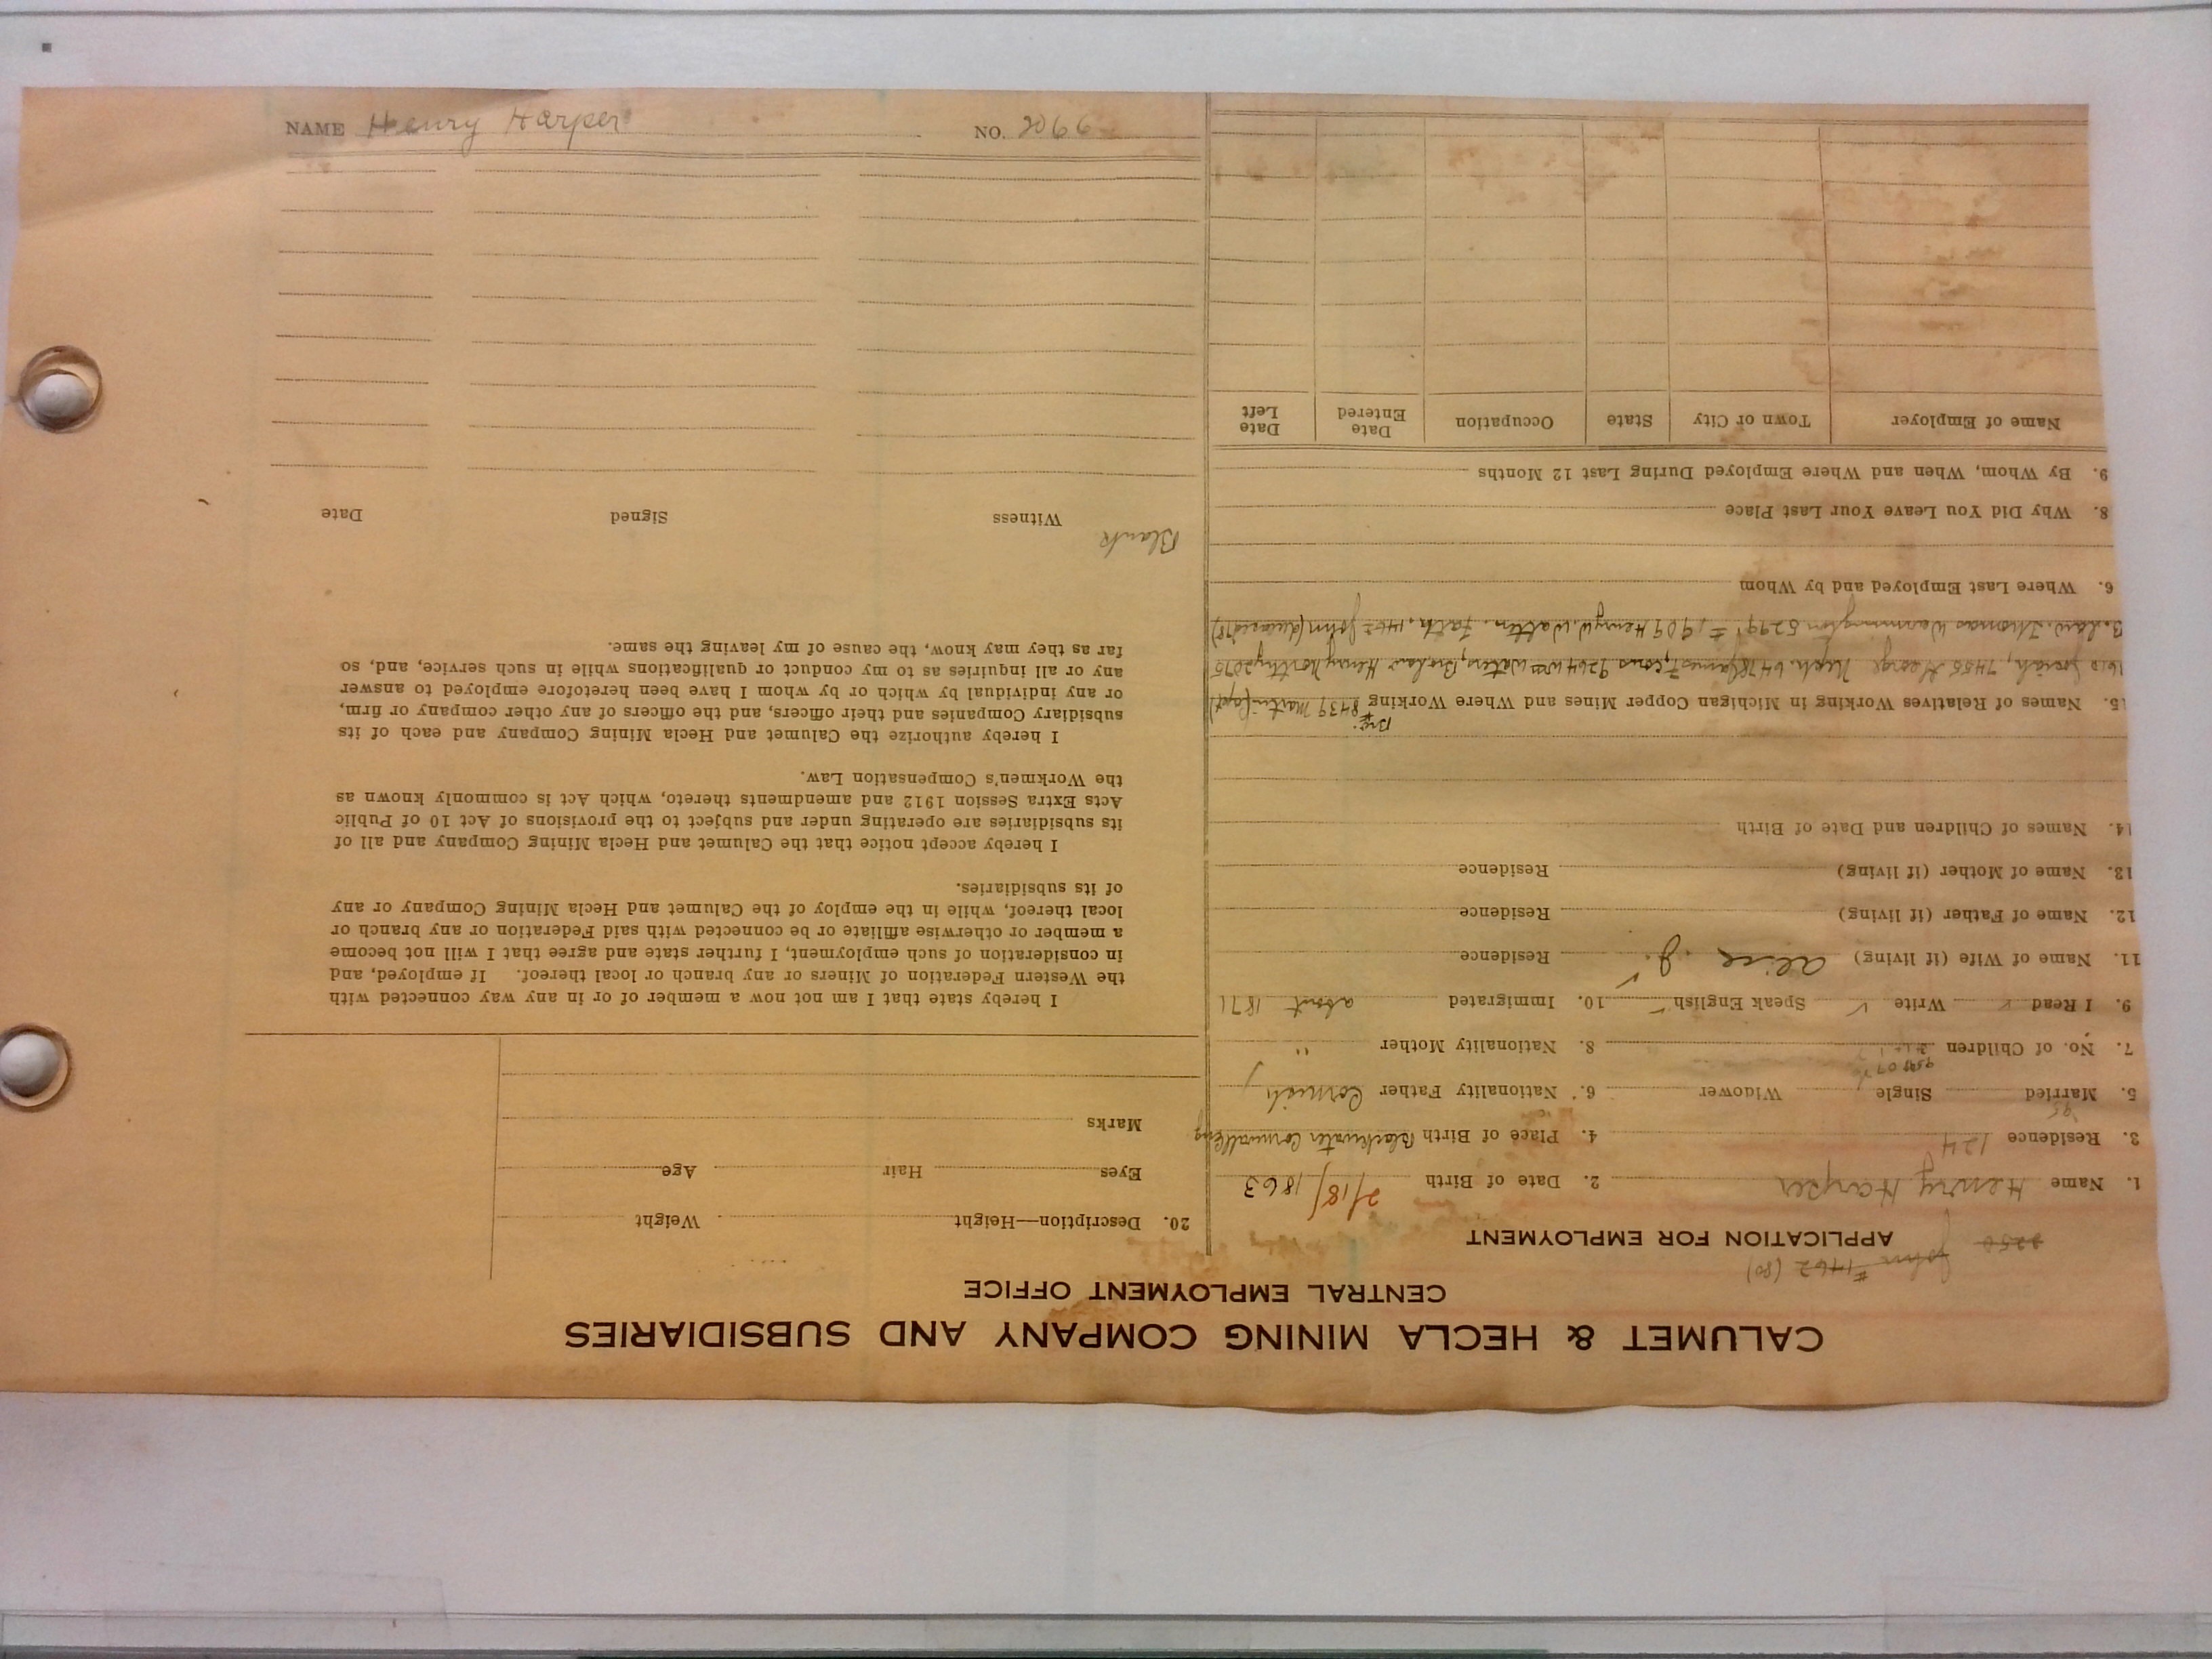 CALUMET & HECLA MINING COMPANY AND SUBSIDIARIES
CENTRAL EMPLOYMENT OFFICE
John #1462 (80)
3250 APPLICATION FOR EMPLOYMENT
1. Name Henry Harper 2. Date of Birth 2/18/1863
3. Residence 124 4. Place of Birth Blackwater Cornwall Eng
5. Married Single Widower 6. Nationality Father Cornish
7. No. of Children 8. Nationality Mother "
9. I Read ✓ Write ✓ Speak English ✓ 10. Immigrated about 1871
11. Name of Wife (if living) Alice J. Residence
12. Name of Father (if living) Residence
13. Name of Mother (if living) Residence
14. Names of Children and Date of Birth
15. Names of Relatives Working in Michigan Copper Mines and Where Working 8439 Martin (Capt)
Josiah, 7455 George Neph. 6478 James T, cous 9264 Wm Waters, Bro. law Henry Northey 2075
B. law. Thomas Warmington 5299 1909 Henry W. Walter. Fath. 1462 John (deceased)
6. Where Last Employed and by Whom
8. Why Did You Leave Your Last Place
9. By Whom, When and Where Employed During Last 12 Months
Name of Employer Town or City State Occupation Date Entered Date Left
20. Description—Height Weight
Eyes Hair Age
Marks
I hereby state that I am not now a member of or in any way connected with
the Western Federation of Miners or any branch or local thereof. If employed, and
in consideration of such employment, I further state and agree that I will not become
a member or otherwise affiliate or be connected with said Federation or any branch or
local thereof, while in the employ of the Calumet and Hecla Mining Company or any
of its subsidiaries.
I hereby accept notice that the Calumet and Hecla Mining Company and all of
its subsidiaries are operating under and subject to the provisions of Act 10 of Public
Acts Extra Session 1912 and amendments thereto, which Act is commonly known as
the Workmen's Compensation Law.
I hereby authorize the Calumet and Hecla Mining Company and each of its
subsidiary Companies and their officers, and the officers of any other company or firm,
or any individual by which or by whom I have been heretofore employed to answer
any or all inquiries as to my conduct or qualifications while in such service, and, so
far as they may know, the cause of my leaving the same.
Blank
Witness Signed Date
NAME Henry Harper NO. 2066